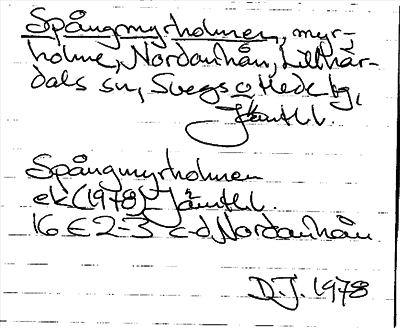 Spångmyrholmen, myr-
holme, Nordanhån, Lillhär-
dals sn, Svegs o Hede tg,
Jämtl l.
Spångmyrholmen
ek (1978) Jämtl l.
16 E 2-3 c-d, Nordanhån
D.J. 1978